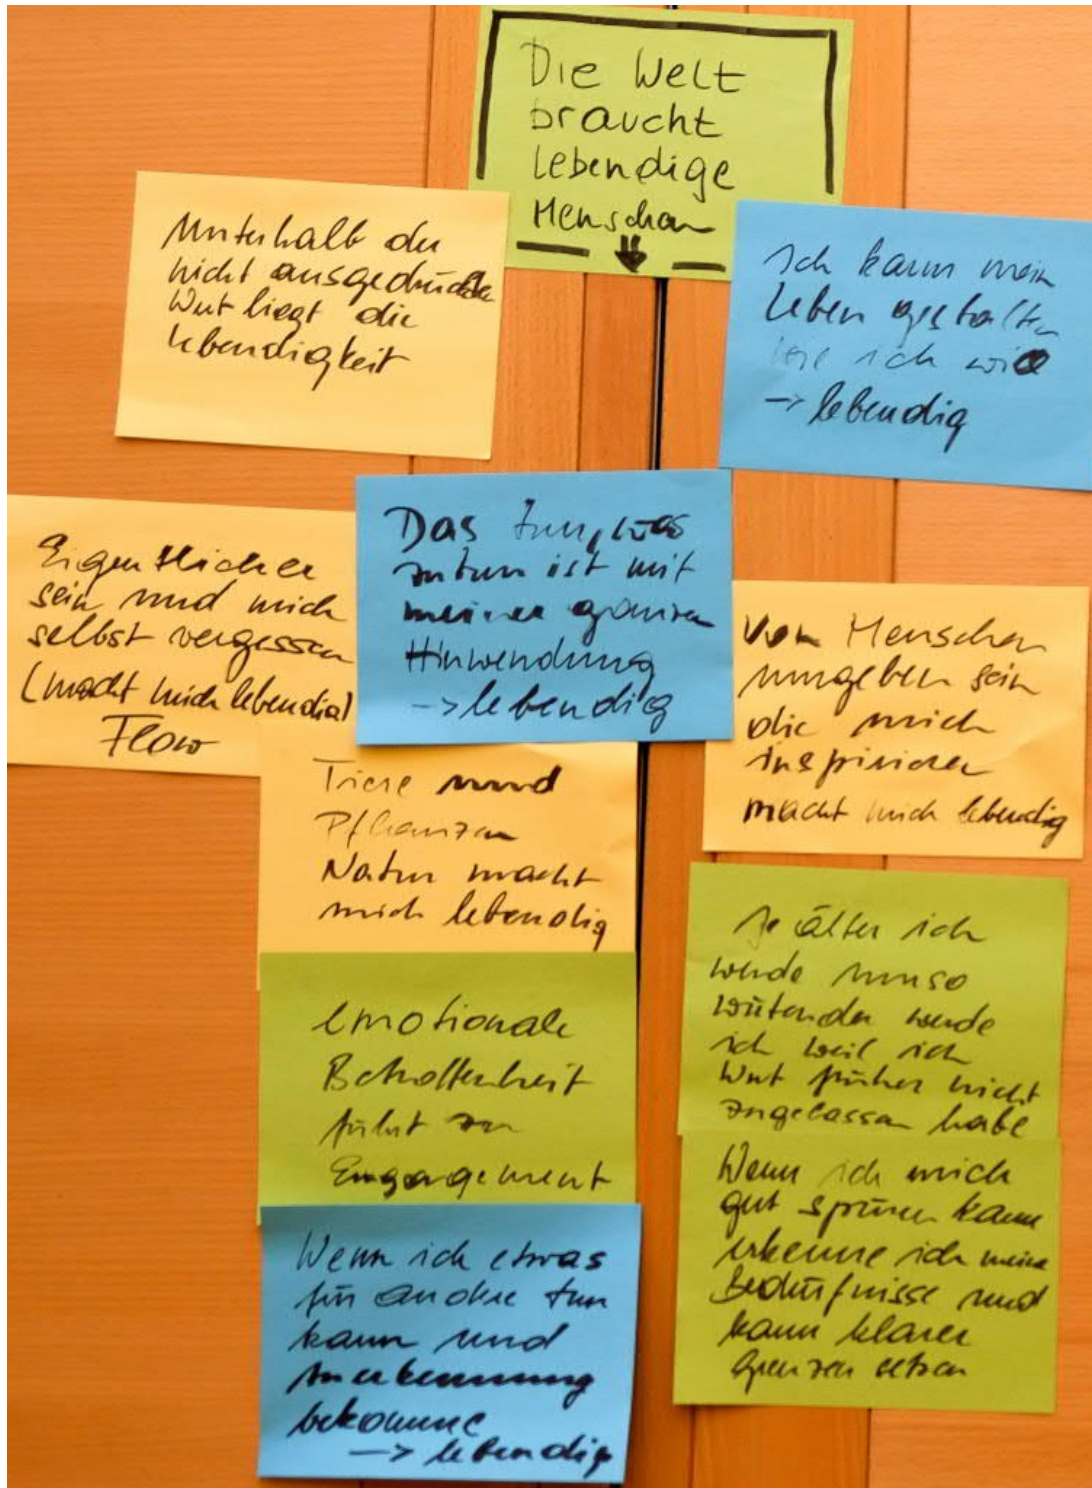 Die Welt
braucht
lebendige
Menschen
Unterhalb der
nicht ausgedrückten
Wut liegt die
lebendigkeit
Ich kann mein
Leben gestalten
wie ich will
-> lebendig
Eigentlicher
sein und mich
selbst vergessen
(macht mich lebendig)
Flow
Das tun, was
zu tun ist mit
meiner ganzen
Hinwendung
-> lebendig
Von Menschen
umgeben sein
die mich
inspirieren
macht mich lebendig
Tiere und
Pflanzen
Natur macht
mich lebendig
Je älter ich
werde umso
wütender werde
ich weil ich
Wut früher nicht
zugelassen habe
emotionale
Betroffenheit
führt zu
Engagement
Wenn ich mich
gut spüren kann
erkenne ich meine
Bedürfnisse und
kann klarer
Grenzen setzen
Wenn ich etwas
für andere tun
kann und
Anerkennung
bekomme
-> lebendig